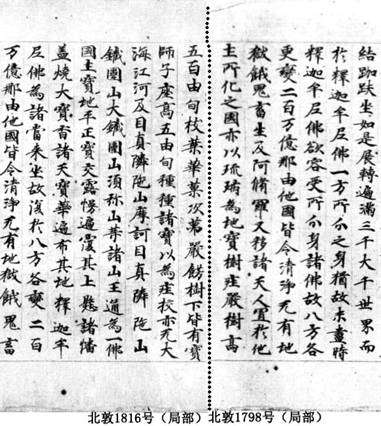 結跏趺坐如是展轉遍滿三千大千世界而
於釋迦牟尼佛一方所分之身猶故未盡時
釋迦牟尼佛欲容受所分身諸佛故八方各
更變二百万億那由他國皆令清淨无有地
獄餓鬼畜生及阿脩羅又移諸天人置於他
土所化之國亦以琉璃為地寶樹莊嚴樹高
五百由旬枝葉華菓次第嚴飾樹下皆有寶
師子座高五由旬種種諸寶以為莊挍亦无大
海江河及目真隣陁山摩訶目真隣陁山
鐵圍山大鐵圍山須弥山等諸山王通為一佛
國土寶地平正寶交露幔遍覆其上懸諸幡
盖燒大寶香諸天寶華遍布其地釋迦牟
尼佛為諸當來坐故復於八方各變二百
万億那由他國皆令清淨无有地獄餓鬼畜
北敦1816号（局部）北敦1798号（局部）